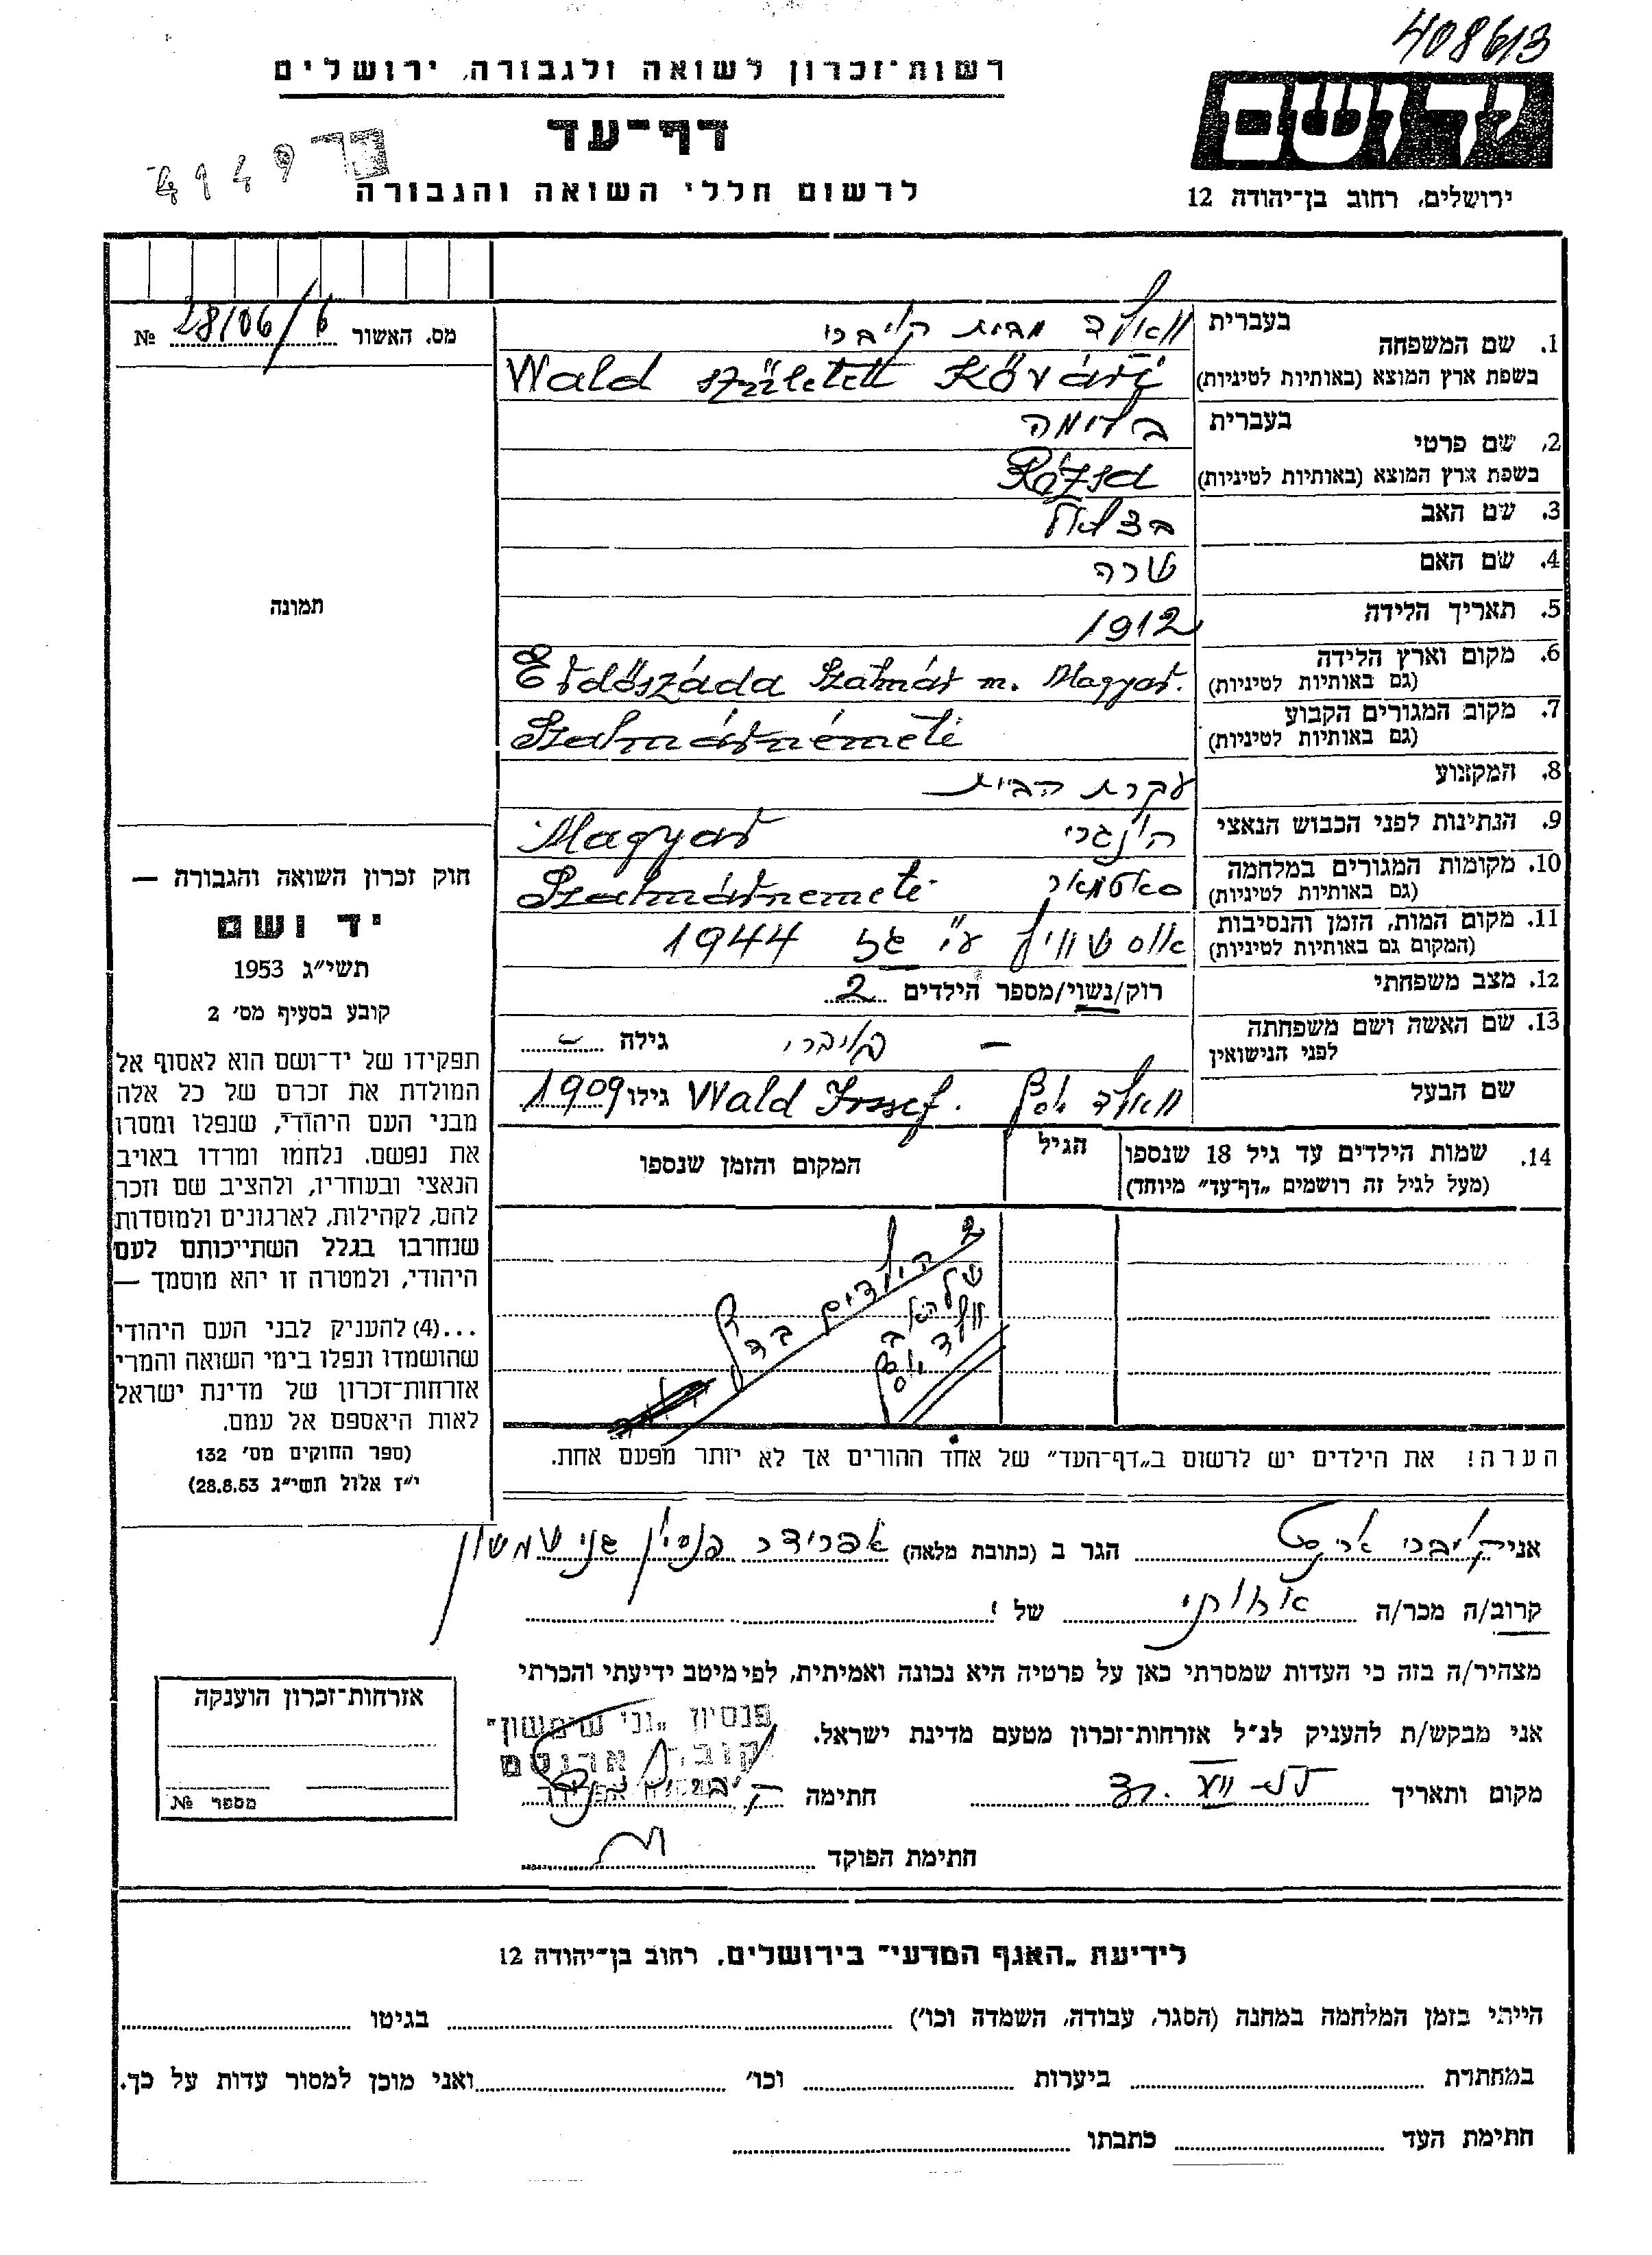 408613
רשות־זכרון לשואה ולגבורה, ירושלים
יד ושם
דף־עד
4149
לרשום חללי השואה והגבורה
ירושלים, רחוב בן־יהודה 12
מס. האשור 28/06/6 №
1. שם המשפחה
בעברית
וואלד מבית קויברי
בשפת ארץ המוצא (באותיות לטיניות)
Wald született Kővári
2. שם פרטי
בעברית
בלימה
בשפת ארץ המוצא (באותיות לטיניות)
Rózsa
3. שם האב
בצלאל
4. שם האם
שרה
5. תאריך הלידה
1912
6. מקום וארץ הלידה
(גם באותיות לטיניות)
Erdőszáda Szatmár m. Magyar.
7. מקום המגורים הקבוע
(גם באותיות לטיניות)
Szatmárnémeti
8. המקצוע
עקרת הבית
9. הנתינות לפני הכבוש הנאצי
הונגרי Magyar
10. מקומות המגורים במלחמה
(גם באותיות לטיניות)
סאטמאר Szatmárnemeti
11. מקום המות, הזמן והנסיבות
(המקום גם באותיות לטיניות)
אושוויץ ע"י גז 1944
12. מצב משפחתי
רוק/נשוי/מספר הילדים 2
13. שם האשה ושם משפחתה
לפני הנישואין
קויברי – גילה –
שם הבעל
וואלד יוסף Wald Jossef. גילו 1909
14. שמות הילדים עד גיל 18 שנספו
(מעל לגיל זה רושמים „דף־עד" מיוחד)
הגיל
המקום והזמן שנספו
2 הילדים בדף
של האב
וולד יוסף
הערה! את הילדים יש לרשום ב„דף־העד" של אחד ההורים אך לא יותר מפעם אחת.
תמונה
חוק זכרון השואה והגבורה —
יד ושם
תשי"ג 1953
קובע בסעיף מס' 2
תפקידו של יד־ושם הוא לאסוף אל
המולדת את זכרם של כל אלה
מבני העם היהודי, שנפלו ומסרו
את נפשם, נלחמו ומרדו באויב
הנאצי ובעוזריו, ולהציב שם וזכר
להם, לקהילות, לארגונים ולמוסדות
שנחרבו בגלל השתייכותם לעם
היהודי, ולמטרה זו יהא מוסמך —
...(4) להעניק לבני העם היהודי
שהושמדו ונפלו בימי השואה והמרי
אזרחות־זכרון של מדינת ישראל
לאות היאספם אל עמם.
(ספר החוקים מס' 132
י"ז אלול תשי"ג 28.8.53)
אני קויברי ארנסט הגר ב (כתובת מלאה) אפרידר פנסיון גני שמשון
קרוב/ה מכר/ה אחותי של י
מצהיר/ה בזה כי העדות שמסרתי כאן על פרטיה היא נכונה ואמיתית, לפי מיטב ידיעתי והכרתי
אני מבקש/ת להעניק לנ"ל אזרחות־זכרון מטעם מדינת ישראל.
פנסיון „גני שימשון"
מקום ותאריך חתימה
חתימת הפוקד
אזרחות־זכרון הוענקה
מספר №
לידיעת „האגף המדעי" בירושלים, רחוב בן־יהודה 12
הייתי בזמן המלחמה במחנה (הסגר, עבודה, השמדה וכו') בגיטו
במחתרת ביערות וכו' ואני מוכן למסור עדות על כך.
חתימת העד כתבתו